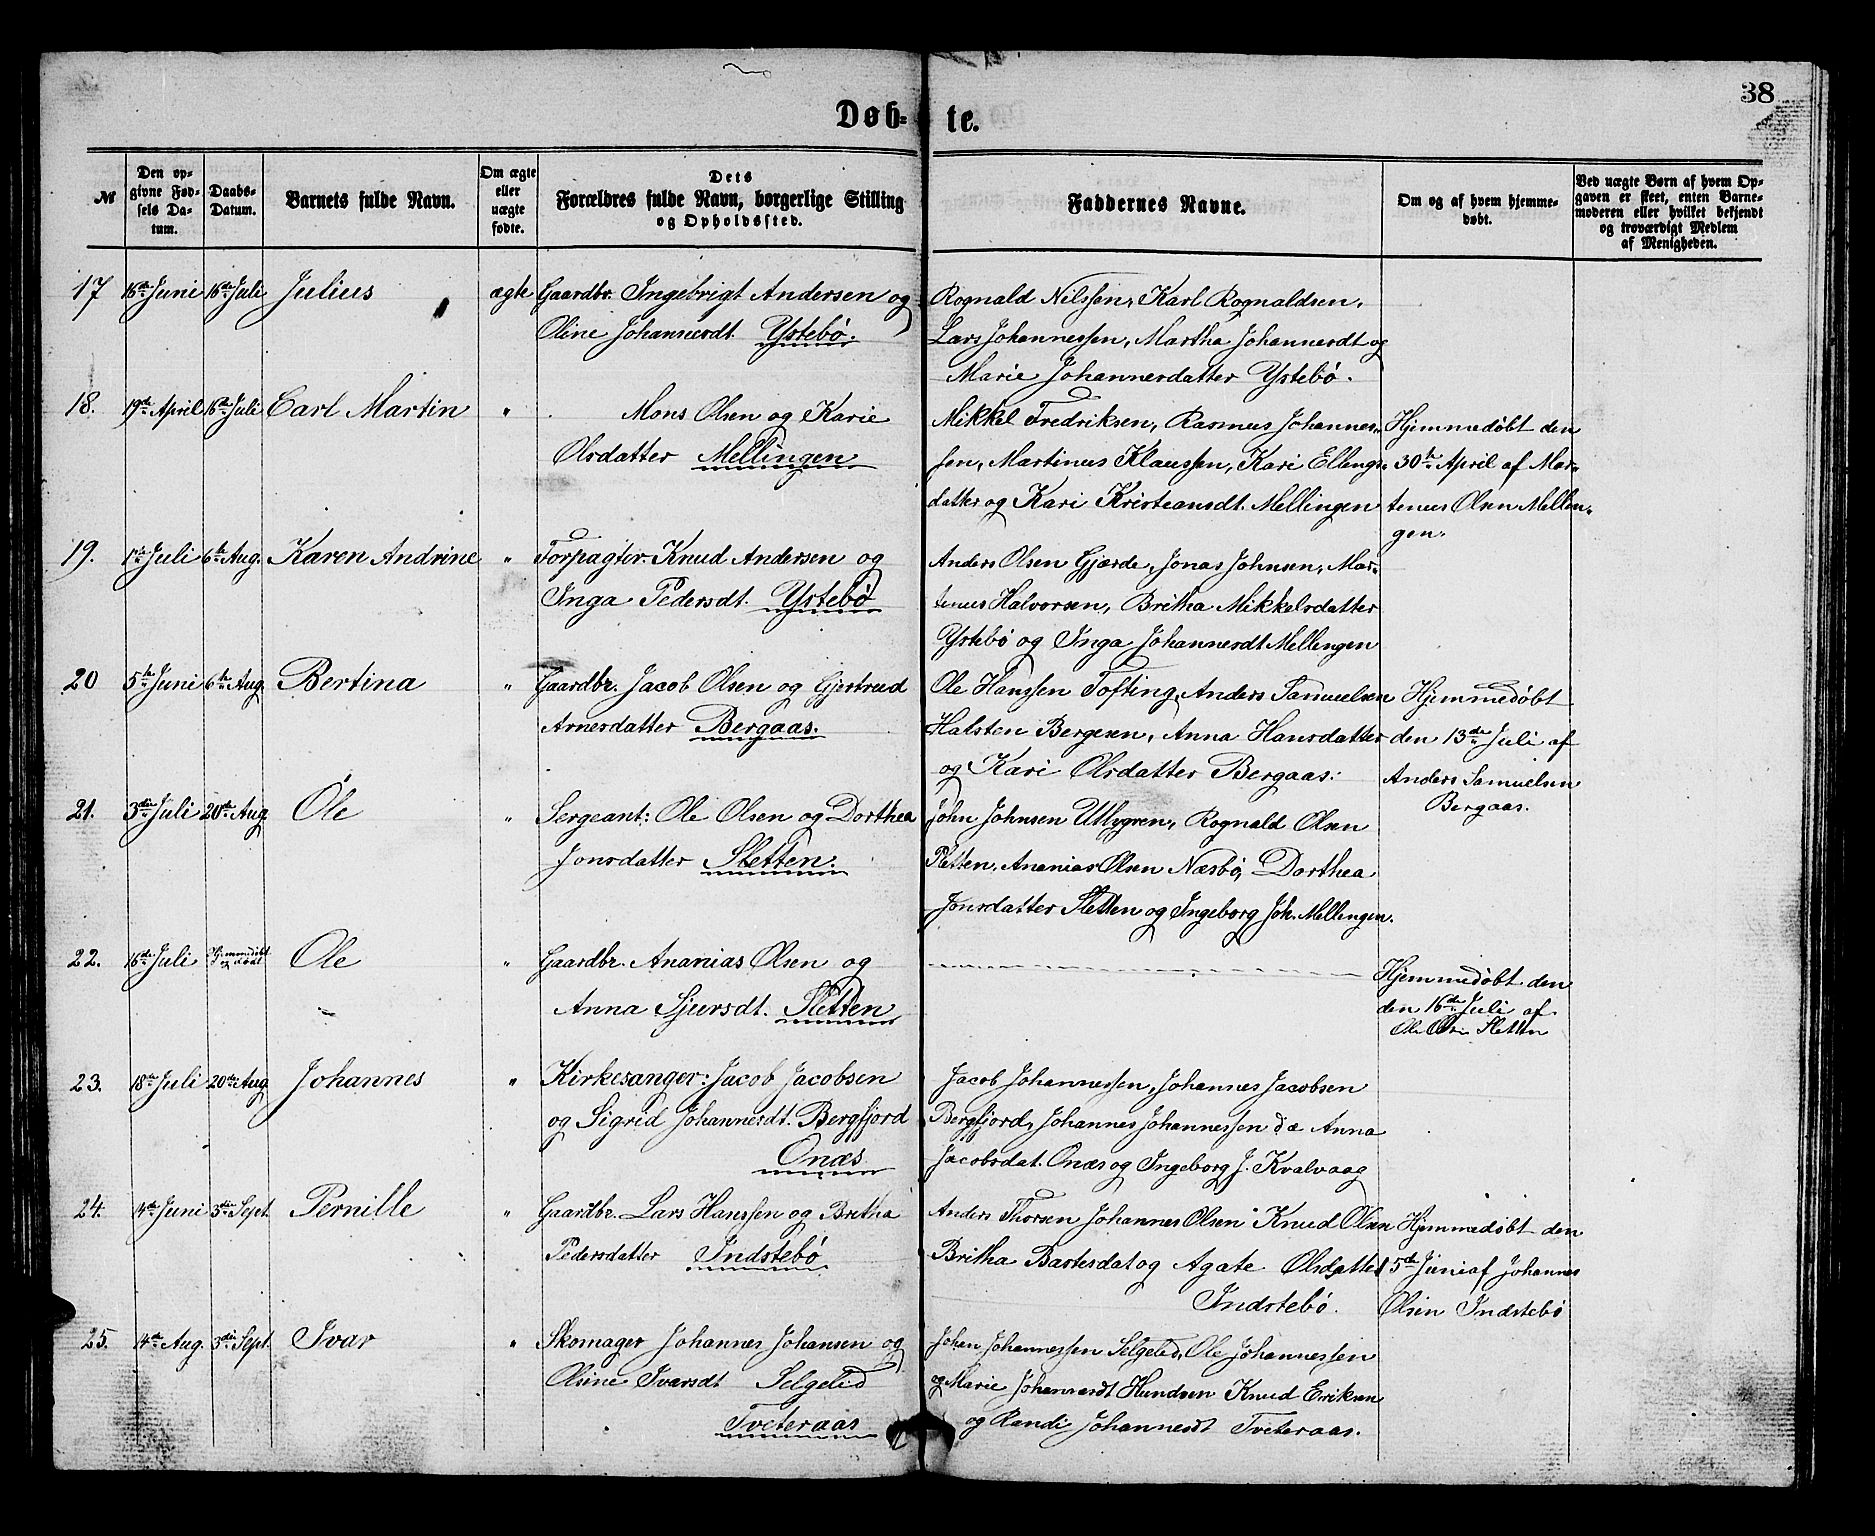 38
Døb- te.
№
Den op-
givne Fød-
sels Da-
tum.
Daabs-
Datum.
Barnets fulde Navn.
Om ægte
eller
uægte
fødte.
Dets
Forældres fulde Navn, borgerlige Stilling
og Opholdssted.
Faddernes Navne.
Om og af hvem hjemme-
døbt.
Ved uægte Børn af hvem Op-
gaven er skeet, enten Barne-
moderen eller hvilket bekjendt
og troværdigt Medlem
af Menigheden.
17 16de Juni 16de Juli Julius ægte Gaardbr. Ingebrigt Andersen og
Oline Johannesdt. Ystebø.
Rognald Nilssen, Karl Rognaldsen,
Lars Johannessen, Martha Johannesdt og
Marie Johannesdatter Ystebø.
18. 19de April 16de Juli Carl Martin " Mons Olsen og Karie
Olsdatter Mellingen
Mikkel Fredriksen, Rasmus Johannes-
sen, Martinus Klaussen, Kari Ellings-
datter og Kari Kristeansdt. Mellingen
Hjemmedøbt den
30te April af Mar-
tenus Olsen Mellin-
gen.
19. 1ste Juli 6te Aug. Karen Andrine " Forpagter. Knud Andersen og
Inga Pedersdt. Ystebø
Anders Olsen Gjærde, Jonas Johnsen, Mar-
tenus Halvorsen, Britha Mikkelsdatter
Ystebø og Inga Johannesdt Mellingen
20 5te Juni 6te Aug. Bertina " Gaardbr. Jacob Olsen og Gjertrud
Arnesdatter Bergaas.
Ole Hanssen Tofting, Anders Samuelsen
Halsten Bergesen, Anna Hansdatter
og Kari Olsdatter Bergaas.
Hjemmedøbt
den 13de Juli af
Anders Samuelsen
Bergaas.
21. 3die Juli 20de Aug Ole " Sergeant: Ole Olsen og Dorthea
Jonsdatter Sletten.
John Johnsen Utlygren, Rognald Olsen
Sletten, Ananias Olsen Næsbø, Dorthea
Jonsdatter Sletten og Ingeborg Joh. Mellingen.
22. 16de Juli Hjemmedøbt
og død Ole " Gaardbr. Ananias Olsen og
Anna Sjursdt. Sletten
Hjemmedøbt den
den 16de Juli af
Ole Sletten
23. 18de Juli 20de Aug Johannes " Kirkesanger: Jacob Jacobsen
og Sigrid Johannesdt. Bergfjord
Onæs
Jacob Johannessen, Johannes Jacobsen
Bergfjord, Johannes Johannessen Anna
Jacobsdat. Onæs og Ingeborg J. Kvalvaag
24. 4de Juni 3die Sept. Pernille " Gaardbr. Lars Hanssen og Britha
Pedersdatter Indstebø
Anders Thorsen Johannes Olsen Knud Olsen
Britha Bastesdat og Agate Olsdatter
Indstebø.
Hjemmedøbt den
5te Juni af Johannes
Olsen Indstebø
25. 14de Aug. 3die Sept. Ivar " Skomager Johannes Johansen og
Olsine Ivarsdt Selgelid
Tveteraas
Johan Johannessen Selgelid, Ole Johannessen
og Marie Johannesdt Knud Eriksen
og Randi Johannesdt Tveteraas.